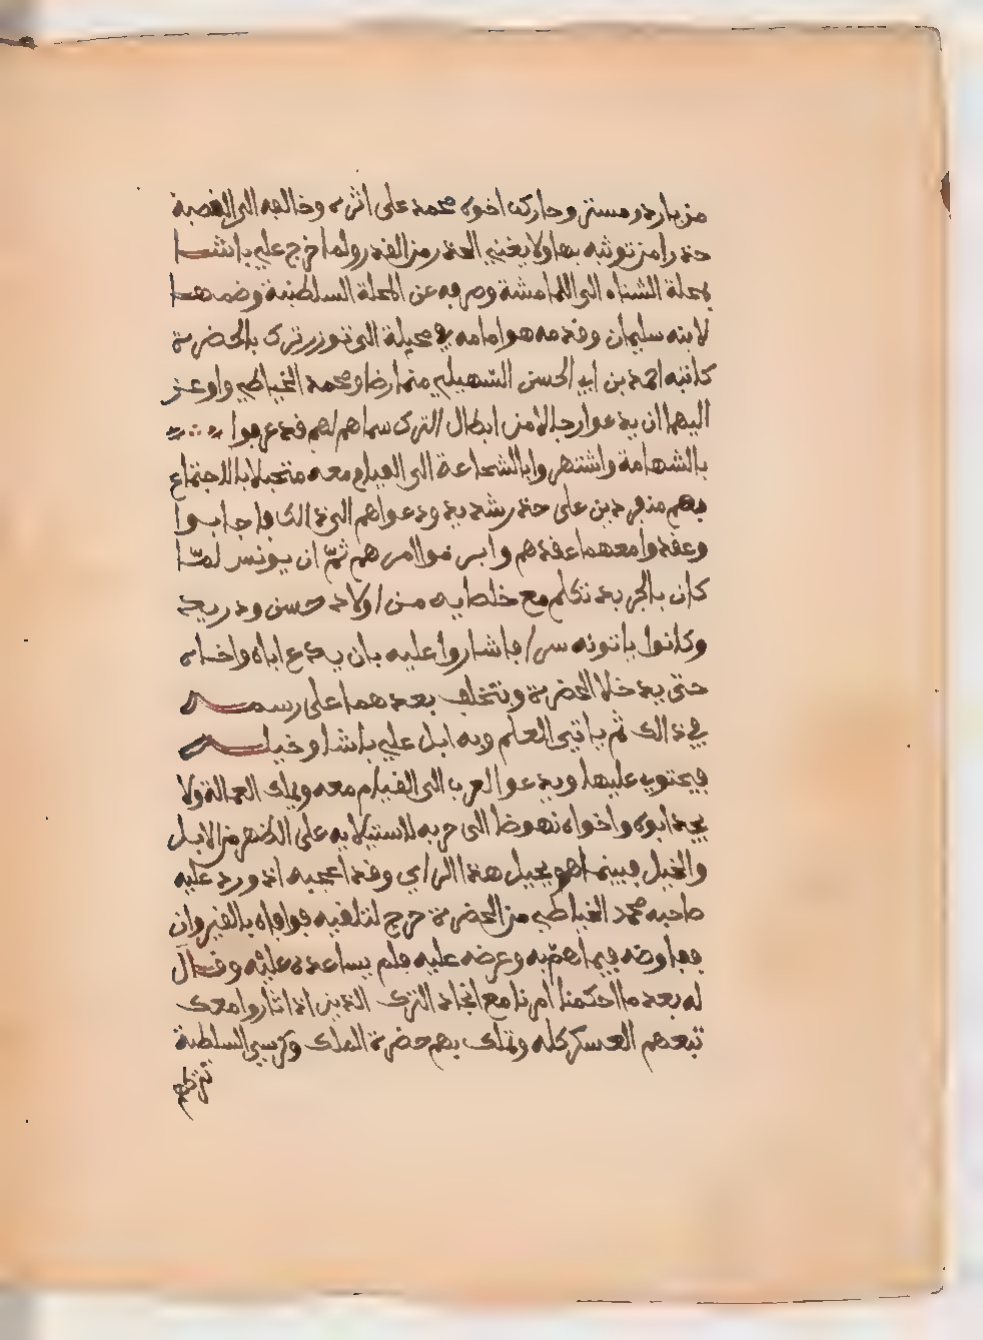 من باردو مستتر وحا ركب اخوه محمد على اثره وخالفه الى القصبة
حذرا من توثبه بها ولا يغني الحذر من القدر ولما خرج علي باشــا
بمحلة الشتاء الى اللمامشة وصرفه عن المحلة السلطنية وضمهــا
لابنه سليمان وقدمه هو امامه في محيلة الى توزر ترك بالحضرة
كاتبه احمد بن ابي الحسن السهيلي متمارضا ومحمد الغياطي واوعز
اليهما ان يدعوا رجالا من ابطال الترك سماهم لهم قد عرفوا
بالشهامة واشتهروا بالشجاعة الى القيام معه متحيلا بالاجتماع
بهم منفردين على حذر شديد ودعواهم الى ذالك فاجابــوا
وعقدوا معهما عقدهم وابرموا امرهم ثم ان يونس لمّا
كان بالجريد تكلم مع خلطايه من اولاد حسن ودريد
وكانوا ياتونه سرا فاشاروا عليه بان يدع اباه واخـاه
حتى يدخلا الحضرة ويتخلف بعدهما على رسمــه
في ذالك ثم ياتي العلم وبه ابل علي باشا وخيلــه
فيحتوي عليها ويدعو العرب الى القيام معه ويملك العمالة ولا
يجد ابوه واخواه نهوضا الى حربه لاستيلايه على الظهر من الابل
والخيل فبينما هو يجيل هذا الراي وقد اعجبه اذ ورد عليه
صاحبه محمد الغياطي من الحضرة خرج لتلقيه فوافاه بالقيروان
ففاوضه فيما اهمّ به وعرضه عليه فلم يساعده عليه وقــال
له بعد ما احكمنا امرنا مع انجاد الترك الذين اذا ثاروا معك
تبعهم العسكر كله وتملك بهم حضرة الملك وكرسي السلطنة